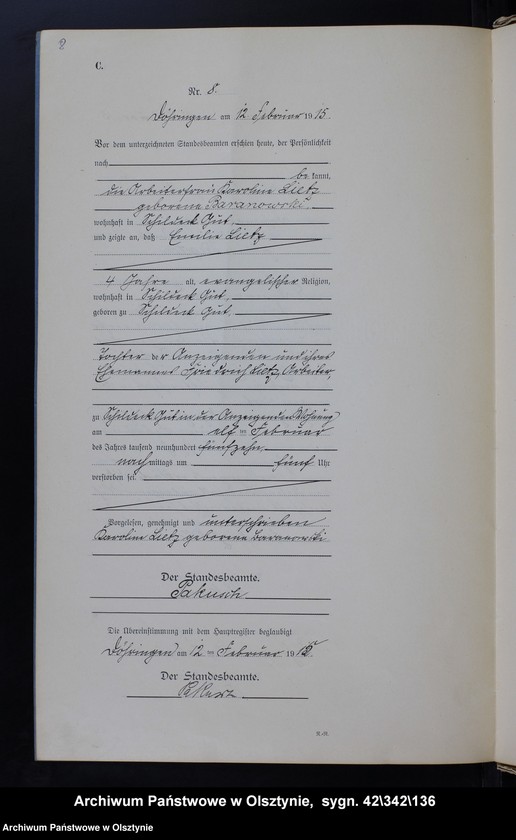 2
C.
Nr. 8.
Döhringen am 12 Februar 1915.
Vor dem unterzeichneten Standesbeamten erschien heute, der Persönlichkeit
nach
be kannt,
die Arbeiterfrau Karoline Lietz
geborene Baranowski
wohnhaft in Schildeck Gut
und zeigte an, daß Emilie Lietz
4 Jahre alt, evangelischer Religion,
wohnhaft in Schildeck Gut,
geboren zu Schildeck Gut
Tochter der Anzeigenden und ihres
Ehemannes Friedrich Lietz, Arbeiter,
zu Schildeck Gut in der Anzeigenden Wohnung
am elf ten Februar
des Jahres tausend neunhundert fünfzehn
nachmittags um fünf Uhr
verstorben sei.
Vorgelesen, genehmigt und unterschrieben
Karoline Lietz geborene Baranowski
Der Standesbeamte.
Pakusch
Die Übereinstimmung mit dem Hauptregister beglaubigt
Döhringen am 12 ten Februar 1915
Der Standesbeamte.
R.-N.
Archiwum Państwowe w Olsztynie, sygn. 42\342\136
Archiwum Państwowe w Olsztynie